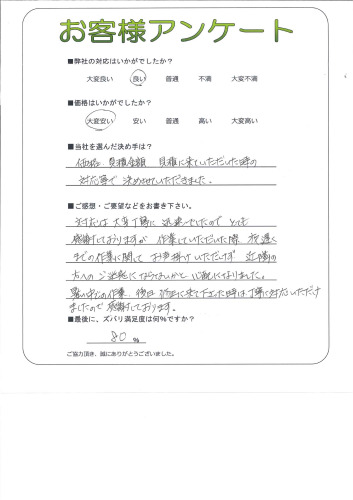 お客様アンケート
■弊社の対応はいかがでしたか?
大変良い 良い 普通 不満 大変不満
■価格はいかがでしたか?
大変安い 安い 普通 高い 大変高い
■当社を選んだ決め手は?
価格、見積金額 見積に来ていただいた時の
対応等で決めさせていただきました。
■ご感想・ご要望などをお書き下さい。
対応は大変丁寧に 迅速でしたので とても
感謝しておりますが 作業していただいた際 夜遅く
までの作業に関して お声掛けいただいたしず 近隣の
方へのご迷惑にならないかと 心配になりました。
暑い中の作業、後日 訪正に来て下さった時は丁寧に対応いただけ
ましたので 感謝しております。
■最後に、ズバリ満足度は何%ですか?
80 %
ご協力頂き、誠にありがとうございました。